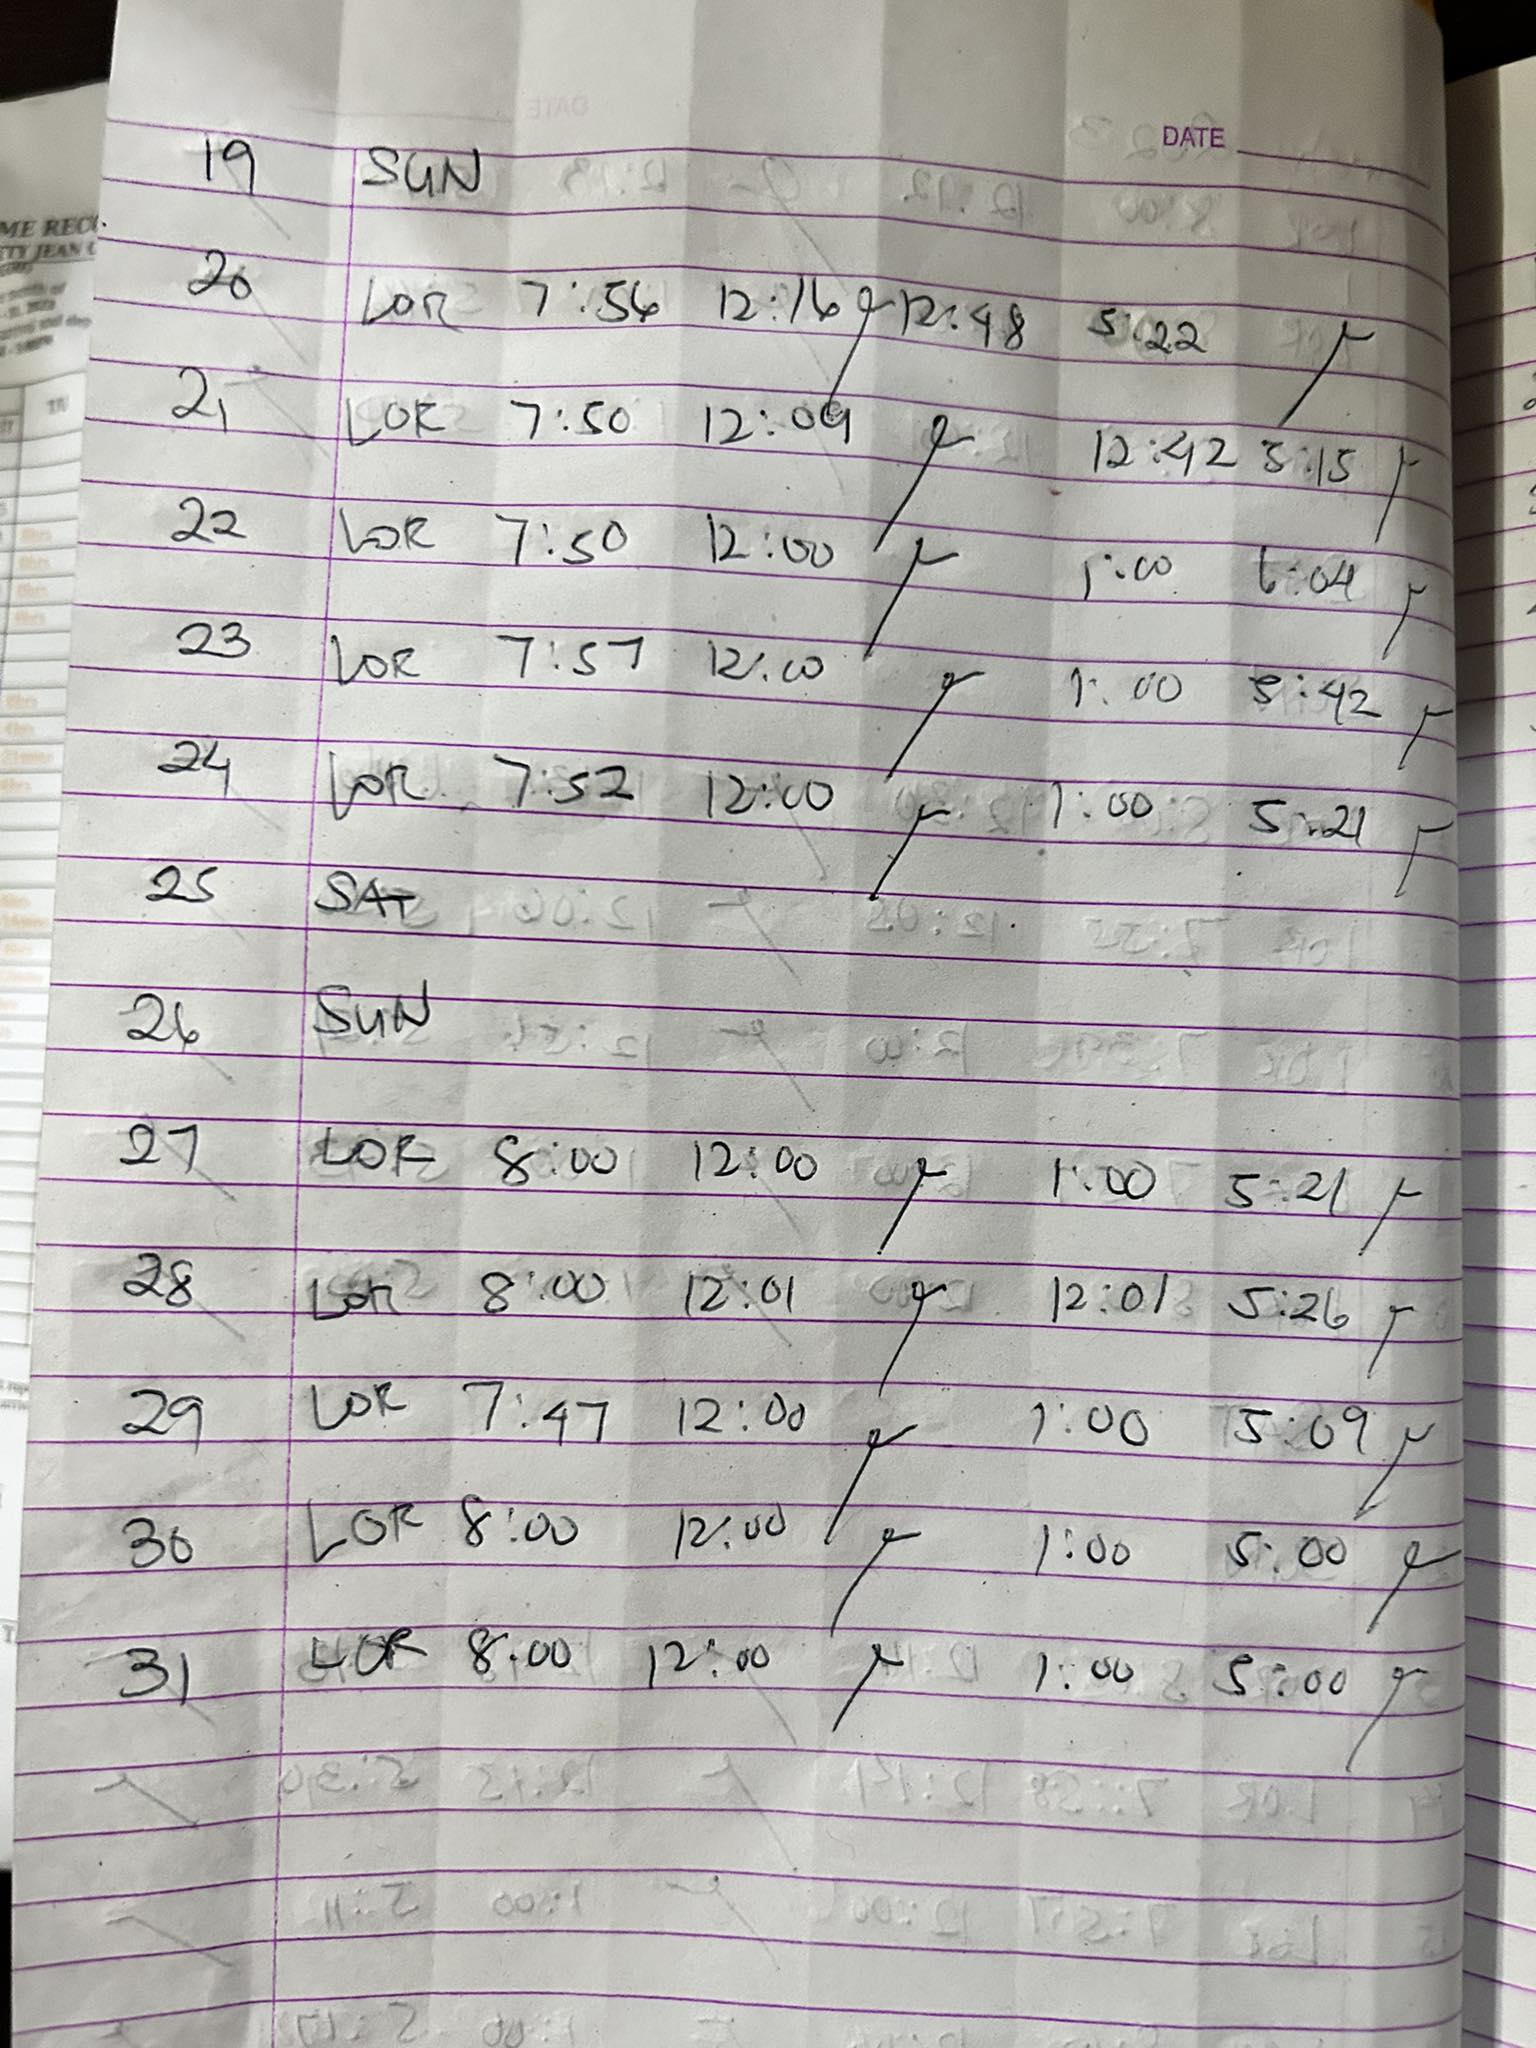 DATE
19 SUN
20 LOR 7:56 12:16 12:48 5:22
21 LOR 7:50 12:09 12:42 5:15
22 LOR 7:50 12:00 1:00 6:04
23 LOR 7:57 12:00 1:00 5:42
24 LOR 7:52 12:00 1:00 5:21
25 SAT
26 SUN
27 LOR 8:00 12:00 1:00 5:21
28 LOR 8:00 12:01 12:01 5:26
29 LOR 7:47 12:00 1:00 5:09
30 LOR 8:00 12:00 1:00 5:00
31 LOR 8:00 12:00 1:00 5:00